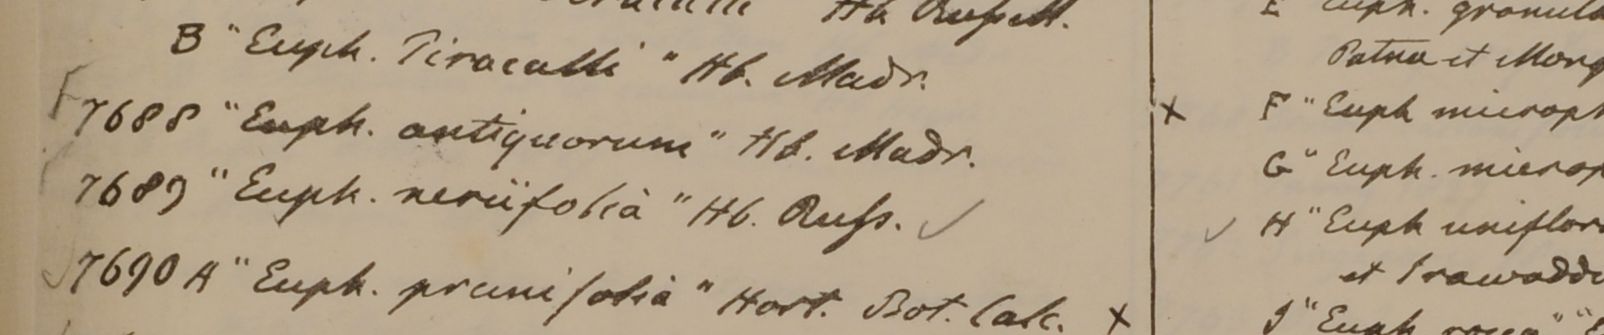 Hb. Russell.
B "Euph. Tiracalli" Hb. Madr.
7688 "Euph. antiquorum" Hb. Madr.
7689 "Euph. neriifolia" Hb. Russ.
7690 A "Euph. prunifolia" Hort. Bot. Calc. x
E Euph. granula
Patna et Mong
x F "Euph microph
G "Euph. microp
H "Euph uniflor
et Irawadd
J "Euph